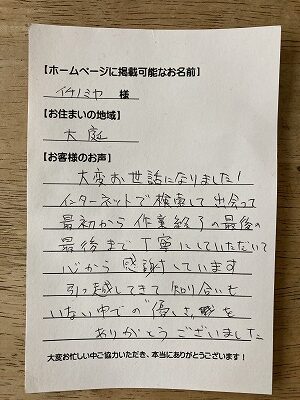 【ホームページに掲載可能なお名前】
イチノミヤ 様
【お住まいの地域】
大庭
【お客様のお声】
大変お世話になりました!
インターネットで検索して出会って
最初から作業終了の最後の
最後まで丁寧にしていただいて
心から感謝しています
引っ越してきて知り合いも
いない中での優しさを
ありがとうございました
大変お忙しい中ご協力いただき、本当にありがとうございます!